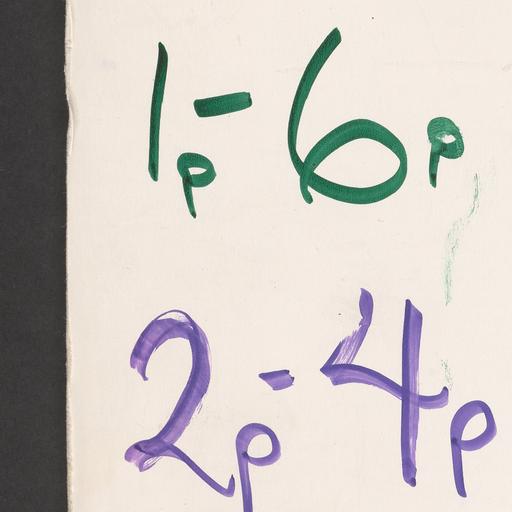 1p-6p
2p-4p